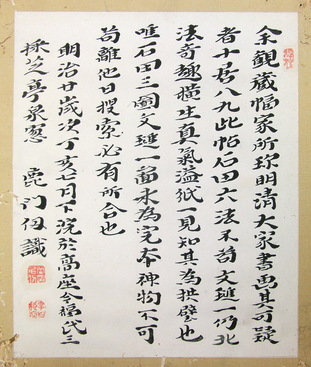 余觀藏幅家所珎明清大家書画其可疑
者十居八九此帖石田六法不苟文璡一仍北
法奇趣橫生真氣溢紙一見知其為拱璧也
唯石田三圖文璡一圖未為完本神物不可
苟離他日搜索必有所合也
明治廿歲次丁亥七月下浣於高座今福氏之
採芝亭窓 鹿门仞識